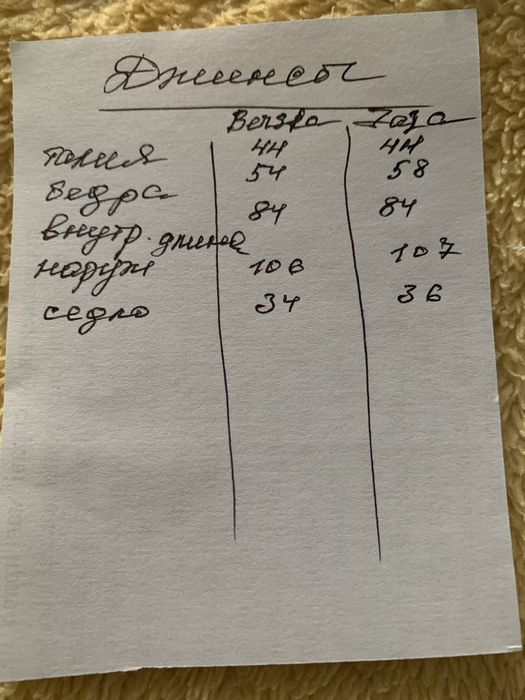 Джинсы
Вечяра Газа
талия 44 44
бедра 54 58
внутр. длина 84 84
наруж 106 107
седло 34 36